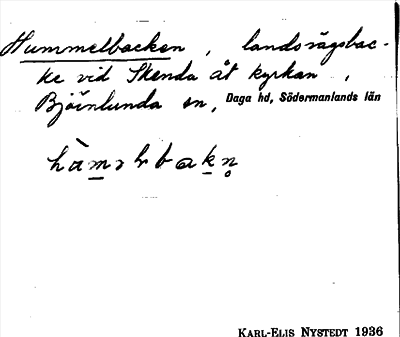 Hummelbacken, landsvägsbac-
ke vid Skenda åt kyrkan,
Björnlunda sn, Daga hd, Södermanlands län
KARL-ELIS NYSTEDT 1936